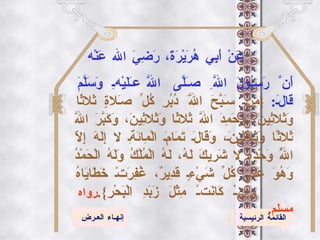 عَنْ أَبِي هُرَيْرَةَ، رَضِيَ الله عَنْه
أَن رَسُولَ اللهِ صَلَّى اللهُ عَلَيْهِ وَسَلَّمَ
قَالَ: {مَنْ سَبَّحَ اللهَ دُبُرَ كُلِّ صَلاةٍ ثَلاثًا
وَثَلاثِينَ، وَحَمِدَ اللهَ ثَلاثًا وَثَلاثِينَ، وَكَبَّرَ اللهَ
ثَلاثًا وَثَلاثِينَ، وَقَالَ تَمَامَ الْمِائَةِ: لا إِلَهَ إِلاَّ
اللهُ وَحْدَهُ لا شَرِيكَ لَهُ، لَهُ الْمُلْكُ وَلَهُ الْحَمْدُ
وَهُوَ عَلَى كُلِّ شَيْءٍ قَدِيرٌ، غُفِرَتْ خَطَايَاهُ
وَإِنْ كَانَتْ مِثْلَ زَبَدِ الْبَحْرِ}.رواه
مسلم.
القائمة الرئيسية
إنهاء العرض